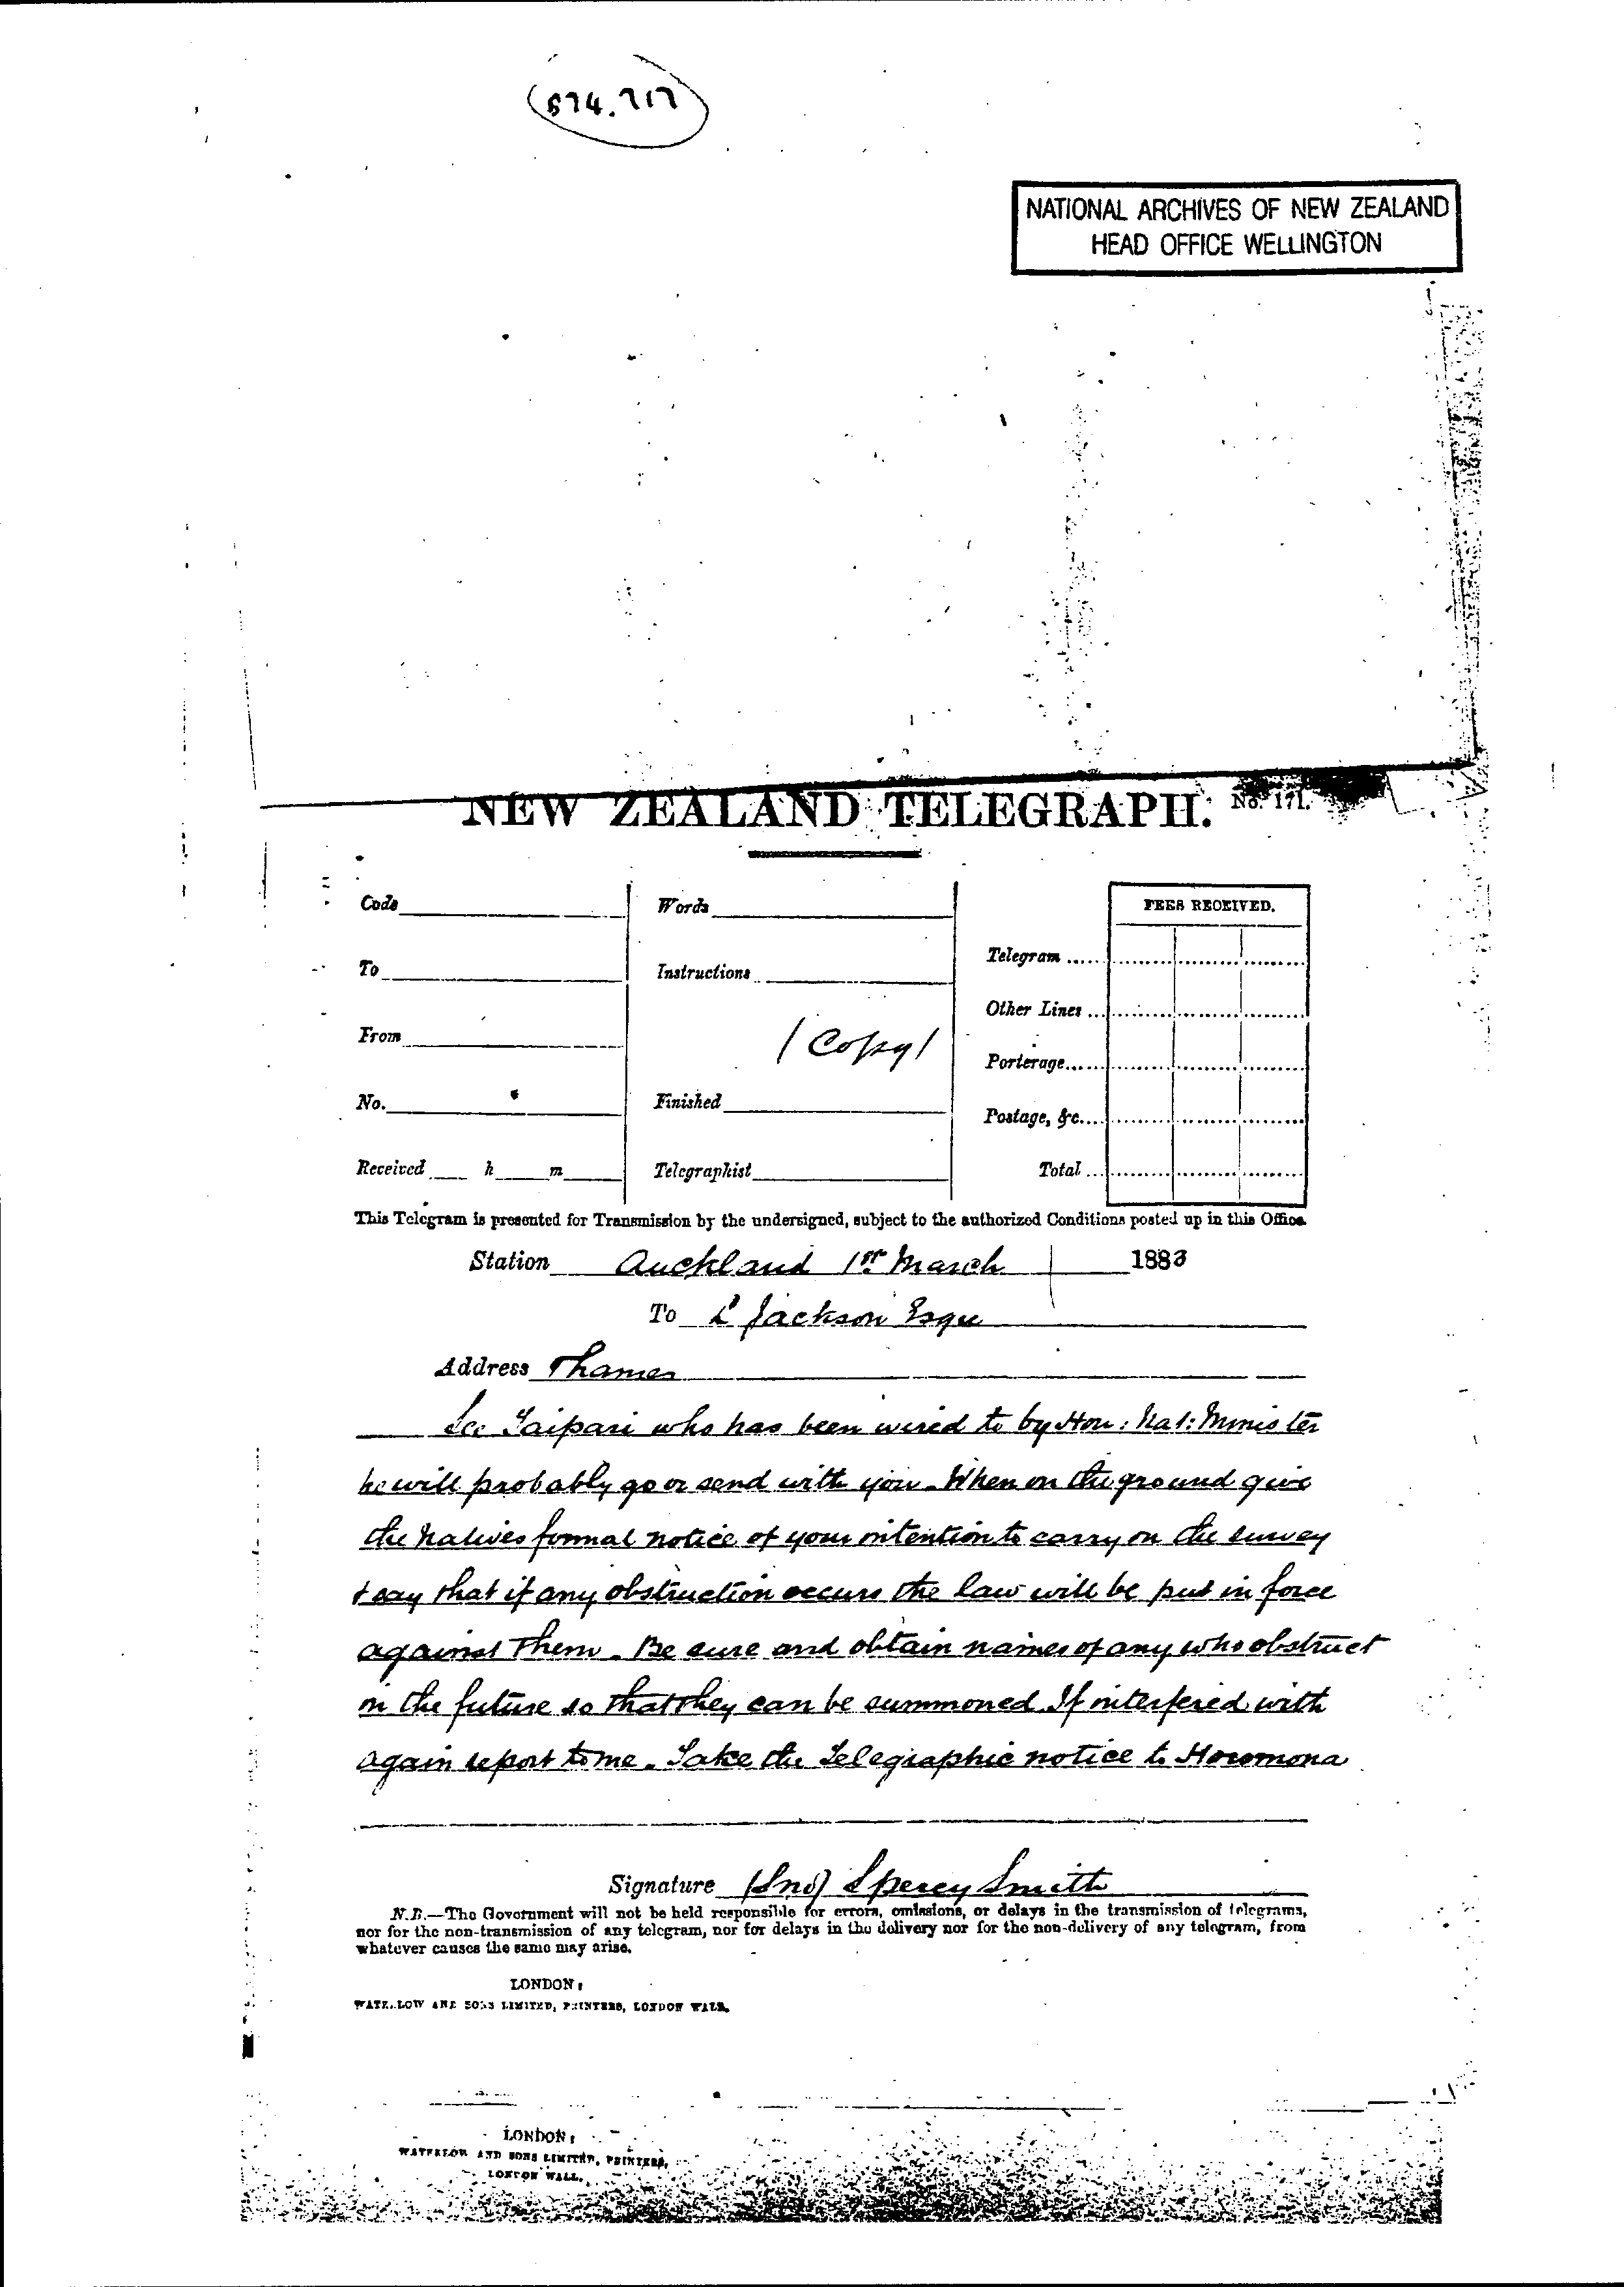 574.717
NATIONAL ARCHIVES OF NEW ZEALAND
HEAD OFFICE WELLINGTON
NEW ZEALAND TELEGRAPH. No. 171.
Code Words FEES RECEIVED.
To Instructions Telegram
Other Lines
From (Copy) Porterage
No. Finished Postage, &c.
Received h m Telegraphist Total
This Telegram is presented for Transmission by the undersigned, subject to the authorized Conditions posted up in this Office.
Station Auckland 1st March 1883
To L Jackson Esqre
Address Thames
See Taipari who has been wired to by Hon: Nat: Minister
he will probably go or send with you. When on the ground give
the Natives formal notice of your intention to carry on the survey
& say that if any obstruction occurs the law will be put in force
against them. Be sure and obtain names of any who obstruct
in the future so that they can be summoned If interfered with
again report to me. Take the Telegraphic notice to Horomona
Signature (Snd) S percy Smith
N.B.—The Government will not be held responsible for errors, omissions, or delays in the transmission of telegrams,
nor for the non-transmission of any telegram, nor for delays in the delivery nor for the non-delivery of any telegram, from
whatever causes the same may arise.
LONDON:
WATERLOW AND SONS LIMITED, PRINTERS, LONDON WALL.
LONDON:
WATERLOW AND SONS LIMITED, PRINTERS,
LONDON WALL.